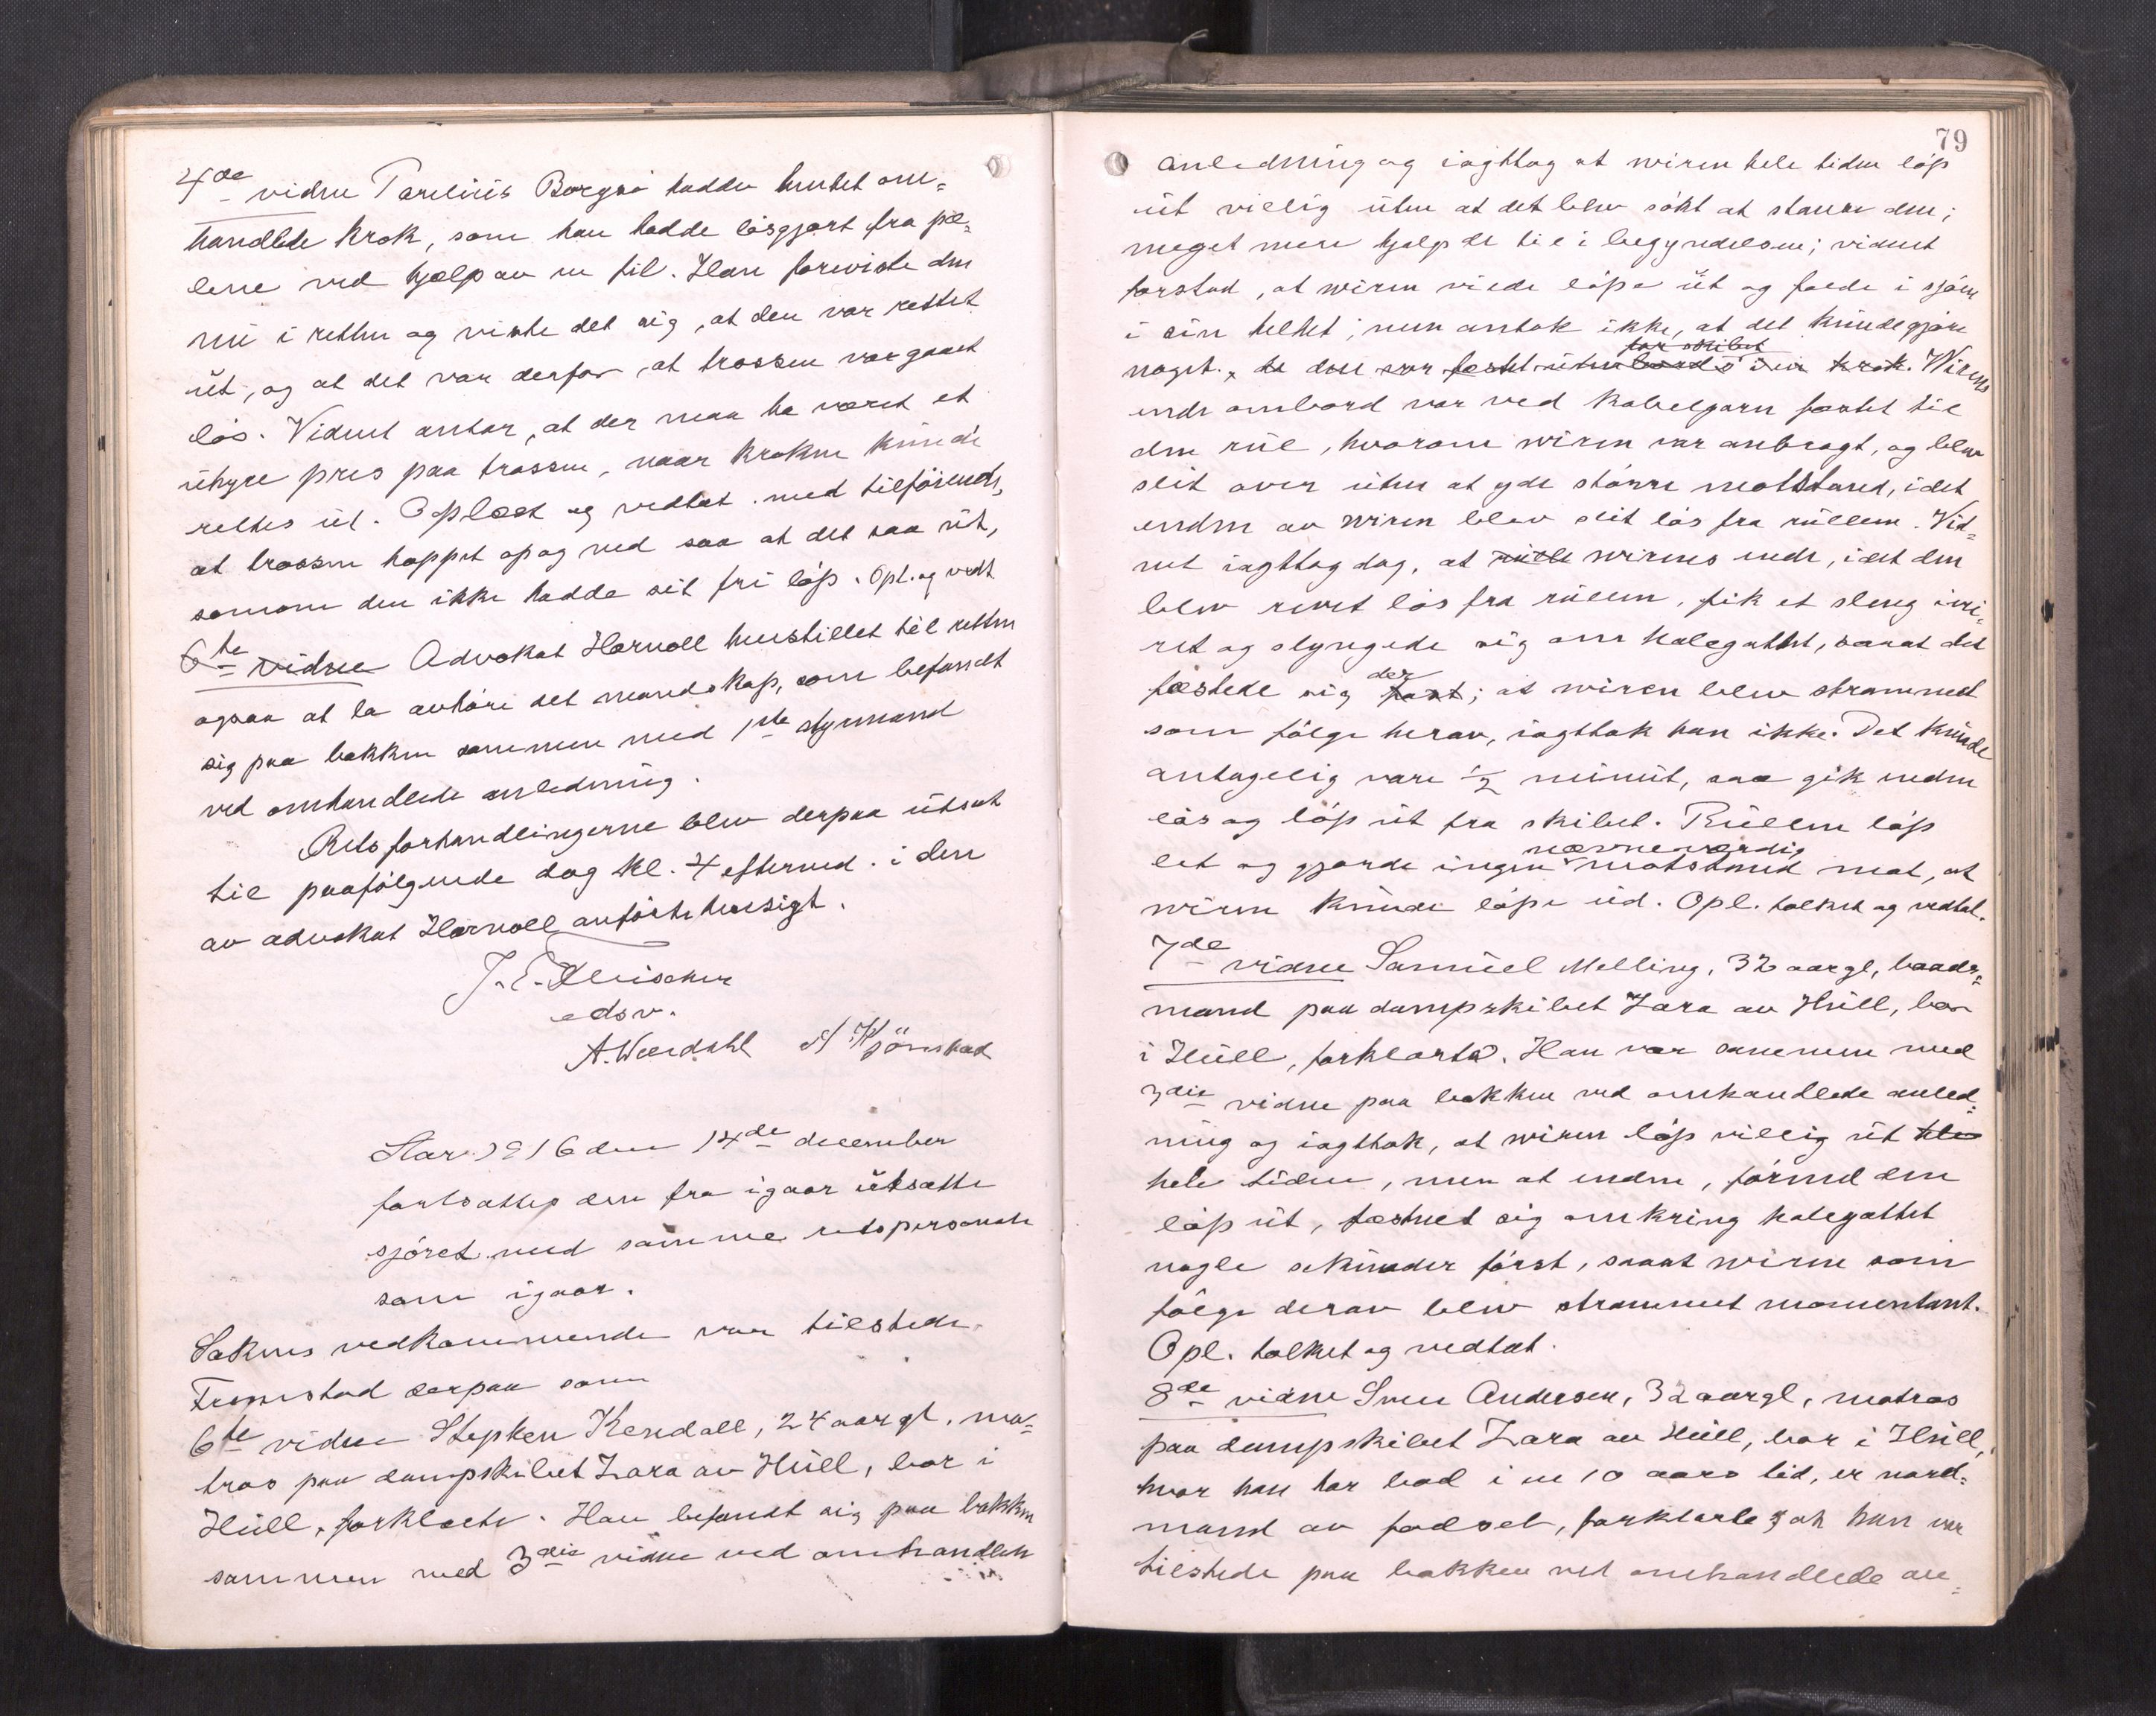 4de vidne Parelius Borgsö hadde hentet om=
handlede krok, som han hadde lösgjort fra pæ=
lene ved hjælp av en fil. Han foreviste den
nu i retten og viste det sig, at den var rettet
ut, og at det var derfor, at trossen var gaaet
lös. Vidnet antar, at der maa ha været et
uhyre pres paa trossen, naar kroken kunde
rettes ut. Oplæst og vedtat med tilföiende,
at trossen hoppet op og ned saa at det saa ut,
somom den ikke hadde sit fri löp. Opl. og vedt
6te vidne Advokat Hornoll henstillet til retten
ogsaa at la avhöre det mandskap, som befandt
sig paa bakken sammen med 1ste styrmand
ved omhandlede anledning.
Retsforhandlingerne blev derpaa utsat
til paafölgende dag kl. 4 eftermd. i den
av advokat Hornoll anförte hensigt.
J. E. Fleischer
edsv.
A. Weerdahl N Kjönstad
Aar 1916 den 14de december
fortsattes den fra igaar utsatte
sjöret med samme retspersonale
som igaar.
Sakens vedkommende var tilstede.
Fremstod derpaa som
6te vidne Stephen Kendall, 24 aar gl, ma=
tros paa dampskibet Zara av Hull, bor i
Hull, forklarte. Han befandt sig paa bakken
sammen med 3die vidne ved omhandlede
79
anledning og iagttog at wiren hele tiden löp
ut vielig uten at det blev sökt at stanse den;
meget mere hjalp de til i begyndelsen; vidnet
forstod, at wiren vilde löpe ut og falde i sjöen
i sin helhet; men antok ikke, at det kunde gjöre
for skibet
noget. da den var festet utenbords i en krok. Wirens
ende ombord var ved kabelgarn festet til
den rul, hvorom wiren var anbragt, og blev
slit over uten at yde större motstand, idet
enden av wiren blev slit lös fra rullen. Vid=
net iagttog dog, at rulle wirens ende, idet den
blev revet lös fra rullen, fik et sleng i vei=
ret og slyngede sig om halegattet, saaat det
der
festede sig fast; at wiren blev strammet
som fölge herav, iagttok han ikke. Det kunde
antagelig vare ½ minut, saa gik enden
lös og löp ut fra skibet. Rullen löp
nævneværdig
let og gjorde ingen motstand mot, at
wiren kunde löpe ud. Opl. tolket og vedtat.
7de vidne Samuel Melling, 32 aar gl, baads=
mand paa dampskibet Zara av Hull, bor
i Hull, forklarte. Han var sammen med
3die vidne paa bakken ved omhandlede anled=
ning og iagttok, at wiren löp villig ut hele
hele tiden, men at enden, förend den
löp ut, festnet sig omkring halegattet
nogle sekunder först, saaat wiren som
fölge derav blev strammet momentant.
Opl. tolket og vedtat.
8de vidne Sven Andersen, 32 aar gl, matros
paa dampskibet Zara av Hull, bor i Hull,
hvor han har bod i en 10 aars tid, er nord=
mand av fødsel, forklarte at han var
tilstede paa bakken ved omhandlede an=